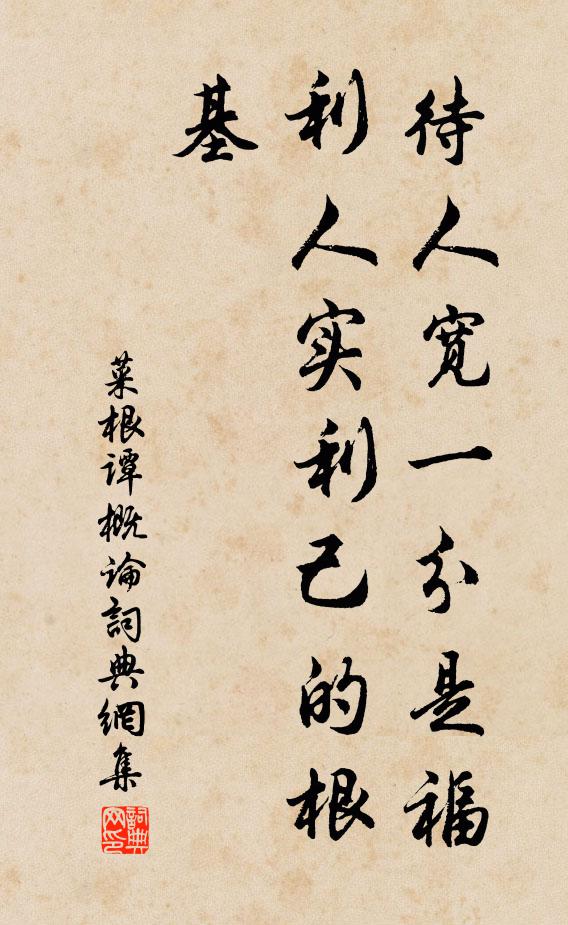 待人宽一分是福
利人实利己的根
基
菜根谭概论詞典網集
詞典网印